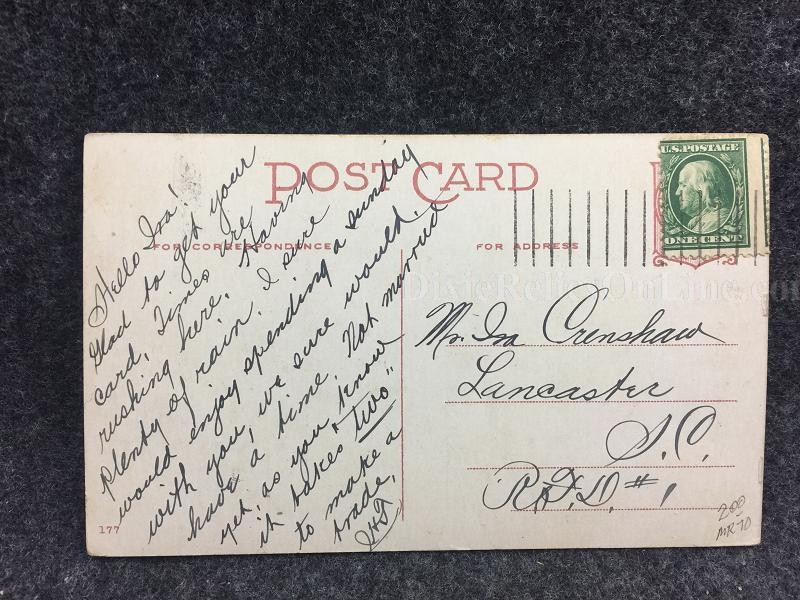 POST CARD
FOR CORRESPONDENCE
FOR ADDRESS
U.S. POSTAGE
ONE CENT
Hello Ira!
Glad to get your
card, Times are
rushing here. Having
plenty of rain. I sure
would enjoy spending a sunday
with you, we sure would.
have a time. Not married
yet, as you know
it takes "two"
to make a
trade.
Mr. Ira Crenshaw
Lancaster
S.C.
R.F.D. # 1
177
200
MR 70
DixieRelicsOnLine.com